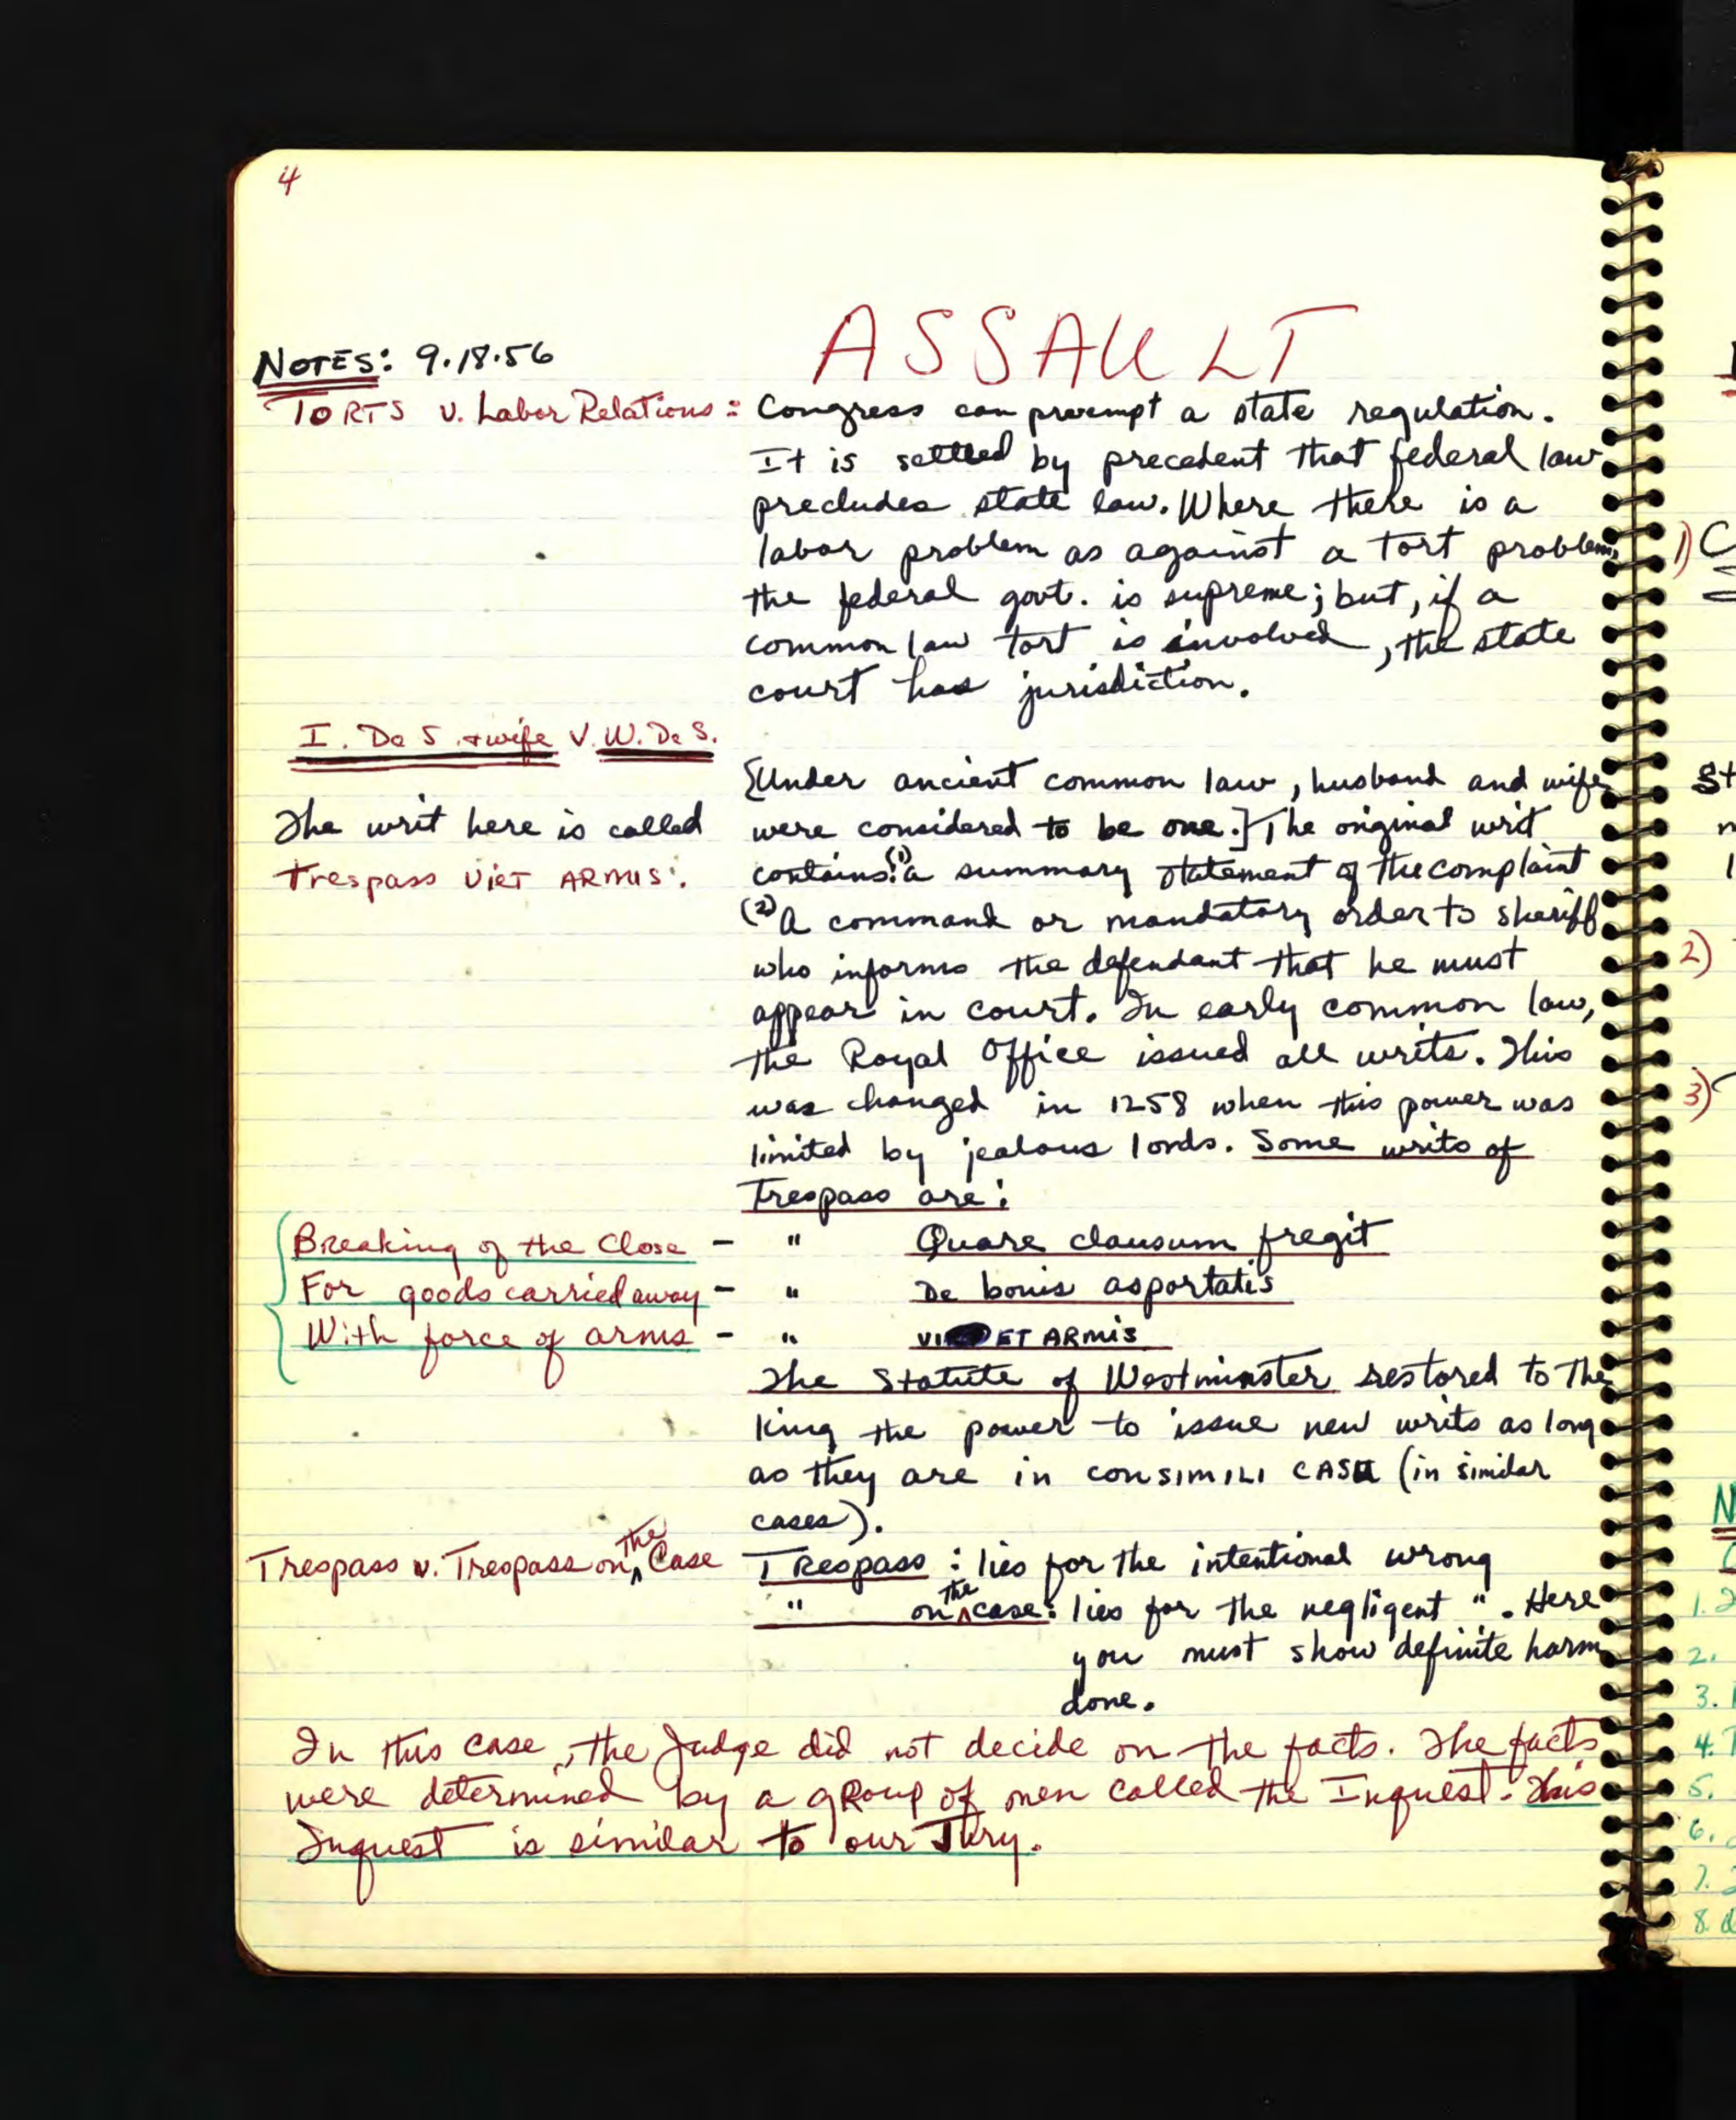 4
ASSAULT
NOTES: 9.18.56
TORTS v. Labor Relations: Congress can preempt a state regulation.
It is settled by precedent that federal law
precludes state law. Where there is a
labor problem as against a tort problem,
the federal govt. is supreme; but, if a
common law tort is involved, the state
court has jurisdiction.
I. De S. + wife V. W. De S.
[Under ancient common law, husband and wife
The writ here is called were considered to be one.] The original writ
trespass ViET ARMIS. contains: (1) a summary statement of the complaint
(2) A command or mandatory order to sheriff
who informs the defendant that he must
appear in court. In early common law,
the Royal Office issued all writs. This
was changed in 1258 when this power was
limited by jealous lords. Some writs of
Trespass are:
Breaking of the Close - " Quare clausum fregit
For goods carried away - " De bonis asportatis
With force of arms - " VI ET ARMIS
The Statute of Westminster restored to the
king the power to issue new writs as long
as they are in CONSIMILI CASU (in similar
cases).
Trespass v. Trespass on the Case Trespass: lies for the intentional wrong
" on the case: lies for the negligent ". Here
you must show definite harm
done.
In this case, the Judge did not decide on the facts. The facts
were determined by a group of men called the Inquest. This
Inquest is similar to our Jury.
1)
2)
3)
1.
2.
3.
4.
5.
6.
7.
8.